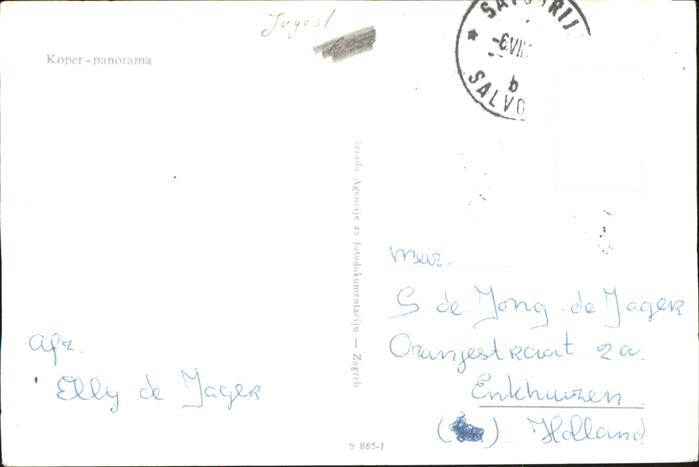 Jugosl
Koper - panorama
SAVUDRIJ
-6.VII.
b
SALVO
Izrada Agencije za fotodokumentaciju — Zagreb
Mevr.
S de Jong-de Jager
Oranjestraat 2a.
Enkhuizen.
( ) Holland
Afz.
Elly de Jager
S 865-1